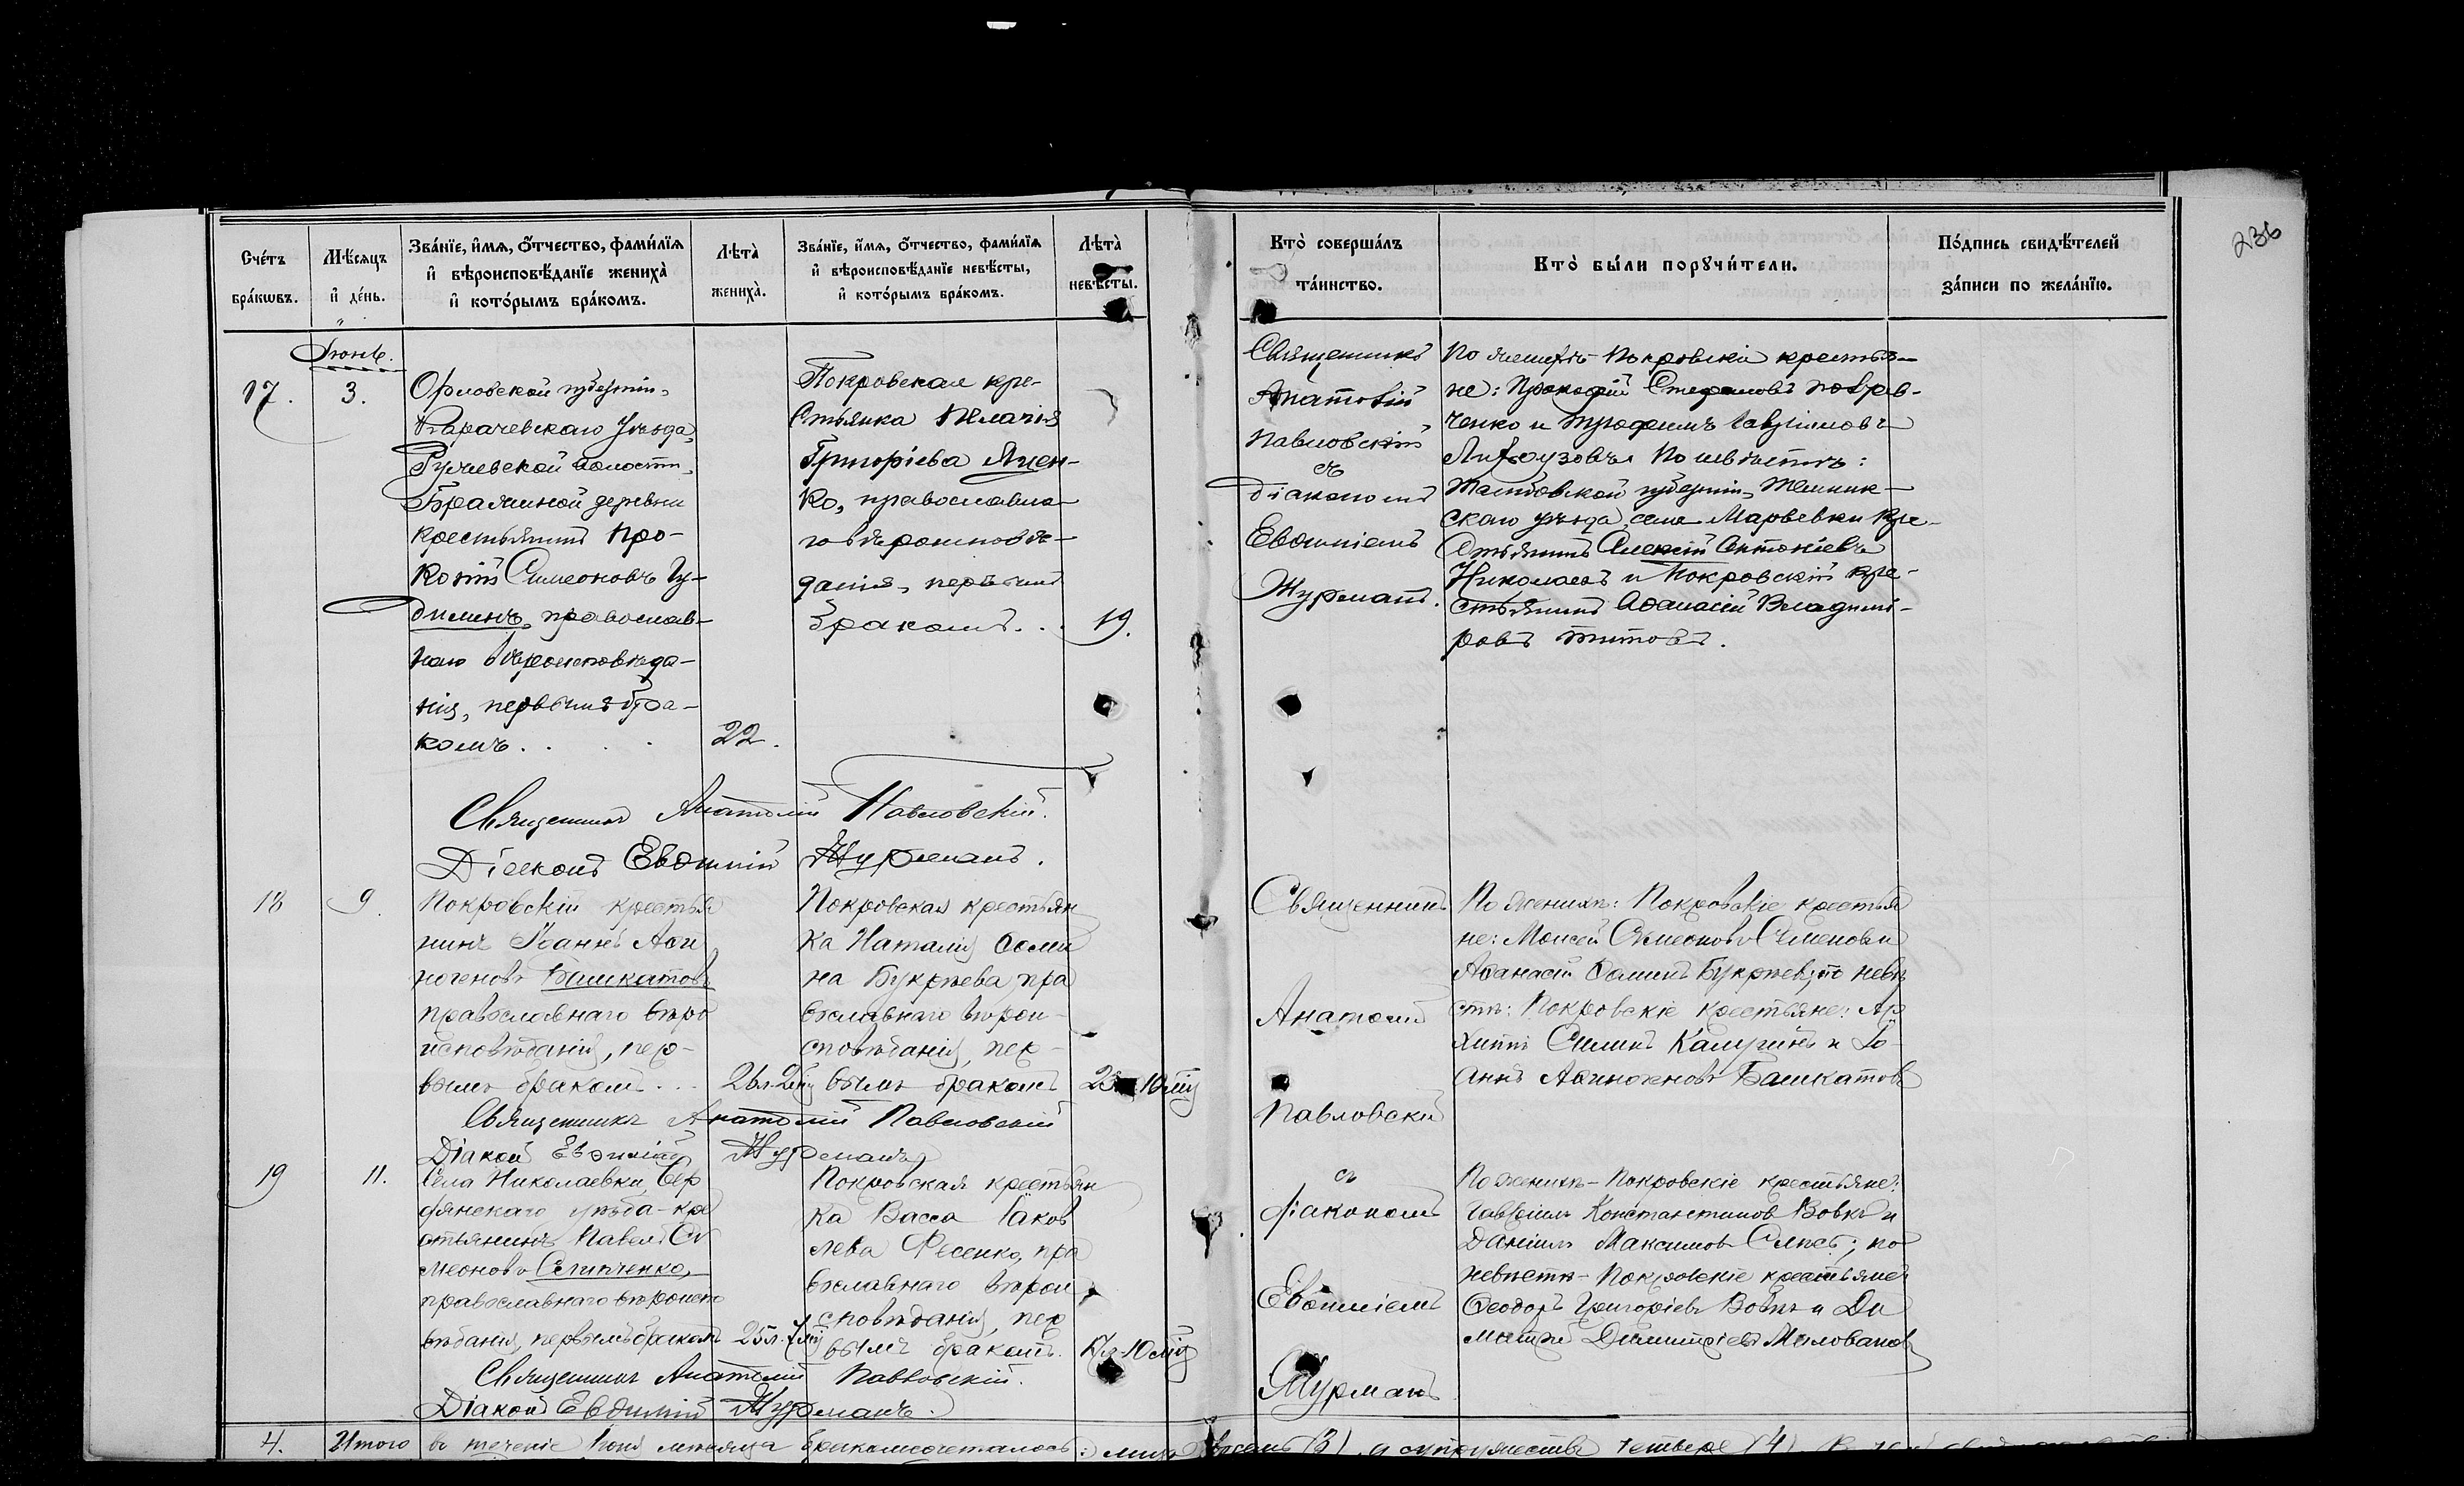 236
Сче́тъ бра́кѡвъ.
Мѣ́сяцъ и҆ де́нь.
Зва́нїе, и҆́мя, ѻ҆́тчество, фами́лїя
и҆ вѣроисповѣ́данїе жениха̀
и҆ кото́рымъ бра́комъ.
Лѣта̀
жениха̀.
Зва́нїе, и҆́мя, ѻ҆́тчество, фами́лїя
и҆ вѣроисповѣ́данїе невѣ́сты,
и҆ кото́рымъ бра́комъ.
Лѣта̀
невѣ́сты.
Кто̀ соверша́лъ
та́инство.
Кто̀ бы́ли порꙋчи́тели.
По́дпись свидѣ́телей
за́писи по жела́нїю.
Іюнь.
17.
3.
Орловской губерніи,
Карачевскаго уѣзда,
волости,
деревни
крестьянинъ Про-
копій Симеоновъ Гу-
диминъ, православ-
наго вѣроисповѣда-
нія, первымъ бра-
комъ. . . .
22.
Покровская кре-
стьянка Пелагія
Григоріева Яцен-
ко, православна-
го вѣроисповѣ-
данія, первымъ
бракомъ. . .
19.
Священникъ
Анатолій
Павловскій
съ
діакономъ
Евѳиміемъ
Журманъ.
По женихѣ Покровскіе крестья-
не: Прокофій Стефановъ
ченко и Трофимъ Гавріиловъ
По невѣстѣ:
Тамбовской губерніи, Темник-
скаго уѣзда, села кре-
стьянинъ Алексій Антоніевъ
Николаевъ и Покровскій кре-
стьянинъ Аѳанасій Владимі-
ровъ Титовъ.
Священникъ Анатолій Павловскій.
Діаконъ Евѳимій Журманъ.
18
9.
Покровскій крестья
нинъ Іоаннъ Аѳи
ногеновъ Башкатовъ
православнаго вѣро
исповѣданія, пер-
вымъ бракомъ. . .
Покровская крестьян
ка Наталія Ѳоми
на Букрѣева, пра
вославнаго вѣрои-
сповѣданія, пер-
вымъ бракомъ
Священникъ
Анатолій
Павловскій
По женихѣ: Покровскіе крестья
не: Моисей Симеоновъ Семеновъ и
Аѳанасій Ѳоминъ Букрѣевъ; по невѣ
стѣ: Покровскіе крестьяне: Ар
хиппъ Симинъ Калугинъ и Іо-
аннъ Аѳиногеновъ Башкатовъ
Священникъ Анатолій Павловскій
Діаконъ Евѳимій Журманъ
19
11.
Села Николаевки, Бер
дянскаго уѣзда-кре
стьянинъ Павелъ Си
меоновъ
православнаго вѣроиспо
вѣданія, первымъ бракомъ
25л. 7м
Покровская крестьян
ка Васса Іаков
лева Фесенко, пра
вославнаго вѣрои
сповѣданія, пер
вымъ бракомъ.
съ
діакономъ
Евѳиміемъ
Журманъ
По женихѣ - Покровскіе крестьяне:
Гавріилъ Константиновъ Вовкъ и
Даніилъ Максимовъ по
невѣстѣ - Покровскіе крестьяне:
Ѳеодоръ Григоріевъ Вовкъ и Ди
митрій Димитріевъ Миловановъ
Священникъ Анатолій Павловскій.
Діаконъ Евѳимій Журманъ.
4. Итого въ теченіе Іюня мѣсяца бракосочеталось: (3) и супружествъ четыре (4)